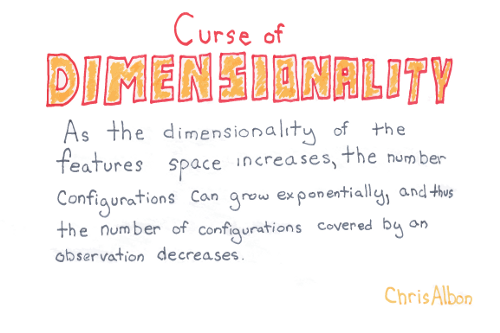 Curse of
DIMENSIONALITY
As the dimensionality of the
features space increases, the number
Configurations can grow exponentially, and thus
the number of configurations covered by an
observation decreases.
Chris Albon